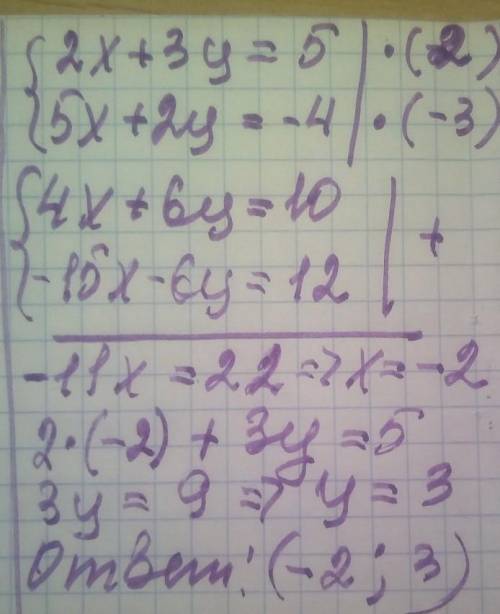 2x+3y = 5 | · (-2)
5x+2y = -4 | · (-3)
4x+6y=10
-15x-6y=12 | +
-11x = 22 => x=-2
2·(-2) + 3y =5
3y = 9 => y = 3
Ответ: (-2; 3)